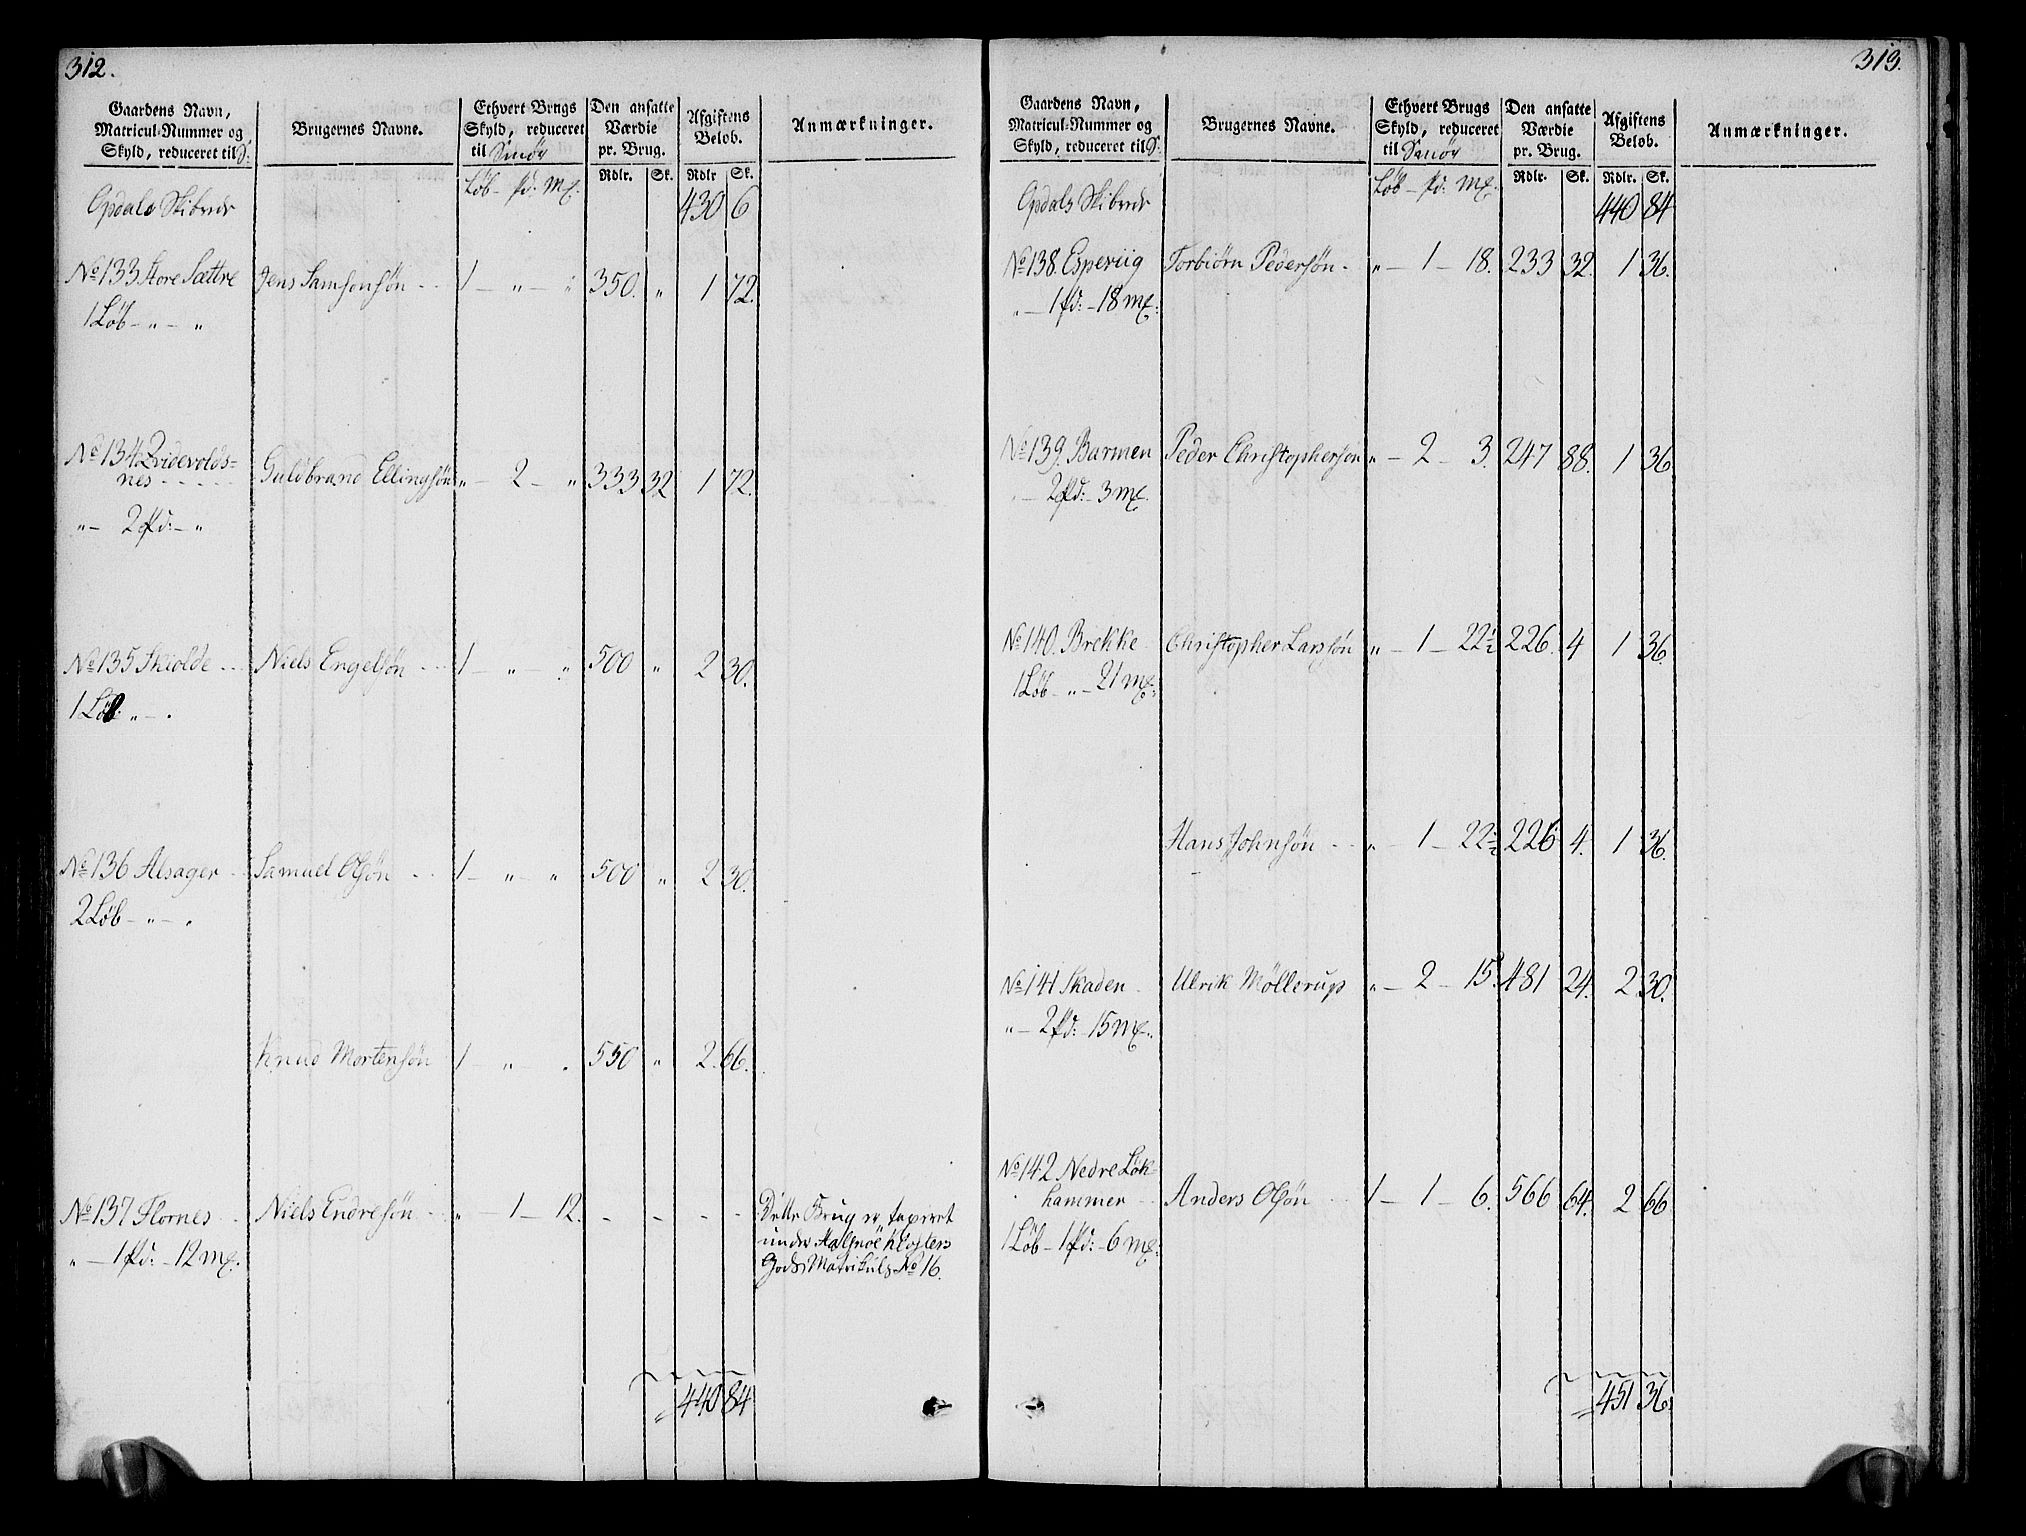 312.
Gaardens Navn, Matricul-Nummer og Skyld, reduceret til S:
Brugernes Navne.
Ethvert Brugs Skyld, reduceret til Smør
Den ansatte Værdie pr. Brug.
Afgiftens Beløb.
Anmærkninger.
Løb - pd: Mk:
Rdlr. Sk. Rdlr Sk.
Opdals Skibrede 430 6
No 133 Store Sættre Jens Samsonsøn - - 1 - " - " 350. " 1 72.
1 Løb - " - "
No 134
nes - - - - - Guldbrand Ellingsøn " - 2 - " 333 32 1 72.
" - 2 pd: - "
No 135 Skiolde - - Niels Engelsøn - - 1 - " - " 500 " 2 30.
1 Løb " - .
No 136 Alsager - - Samuel Olsøn - - 1 - " - " 500 " 2 30.
2 Løb - " - .
Knud Mortensøn 1 - " - . 550 " 2. 66.
No 137 Flornes - - Niels Endresøn - - " - 1 - 12. - - - - Dette Brug er taxeret
under Halsnøe Klosters
Gods Matrikuls No 16.
" - 1 pd: - 12 mk.
440 84
313.
Gaardens Navn, Matricul-Nummer og Skyld, reduceret til S:
Brugernes Navne.
Ethvert Brugs Skyld, reduceret til Smør
Den ansatte Værdie pr. Brug.
Afgiftens Beløb.
Anmærkninger.
Løb - pd: Mk:
Rdlr. Sk. Rdlr. Sk.
Opdals Skibrede 440 84
No 138. Esperiig Torbiørn Pedersøn - " - 1 - 18. 233 32. 1 36.
" - 1 pd: - 18 mk:
No 139. Barmen Peder Christophersøn " - 2 - 3. 247 88. 1 36.
" - 2 pd: - 3 mk.
No 140. Brekke Christopher Larssøn " - 1 - 22½ 226. 4 1 36.
1 Løb - " - 21 mk:
Hans Johnsøn - - " - 1 - 22½ 226 4. 1 36.
No 141 Skaden - Ulrik Møllerup " - 2 - 15. 481 24. 2 30.
" - 2 pd: - 15 mk.
No 142 Nedre Løk-
hammer - - Anders Olsøn - - 1 - 1 - 6. 566 64. 2 66
1 Løb - 1 pd: - 6 mk:
451 36.